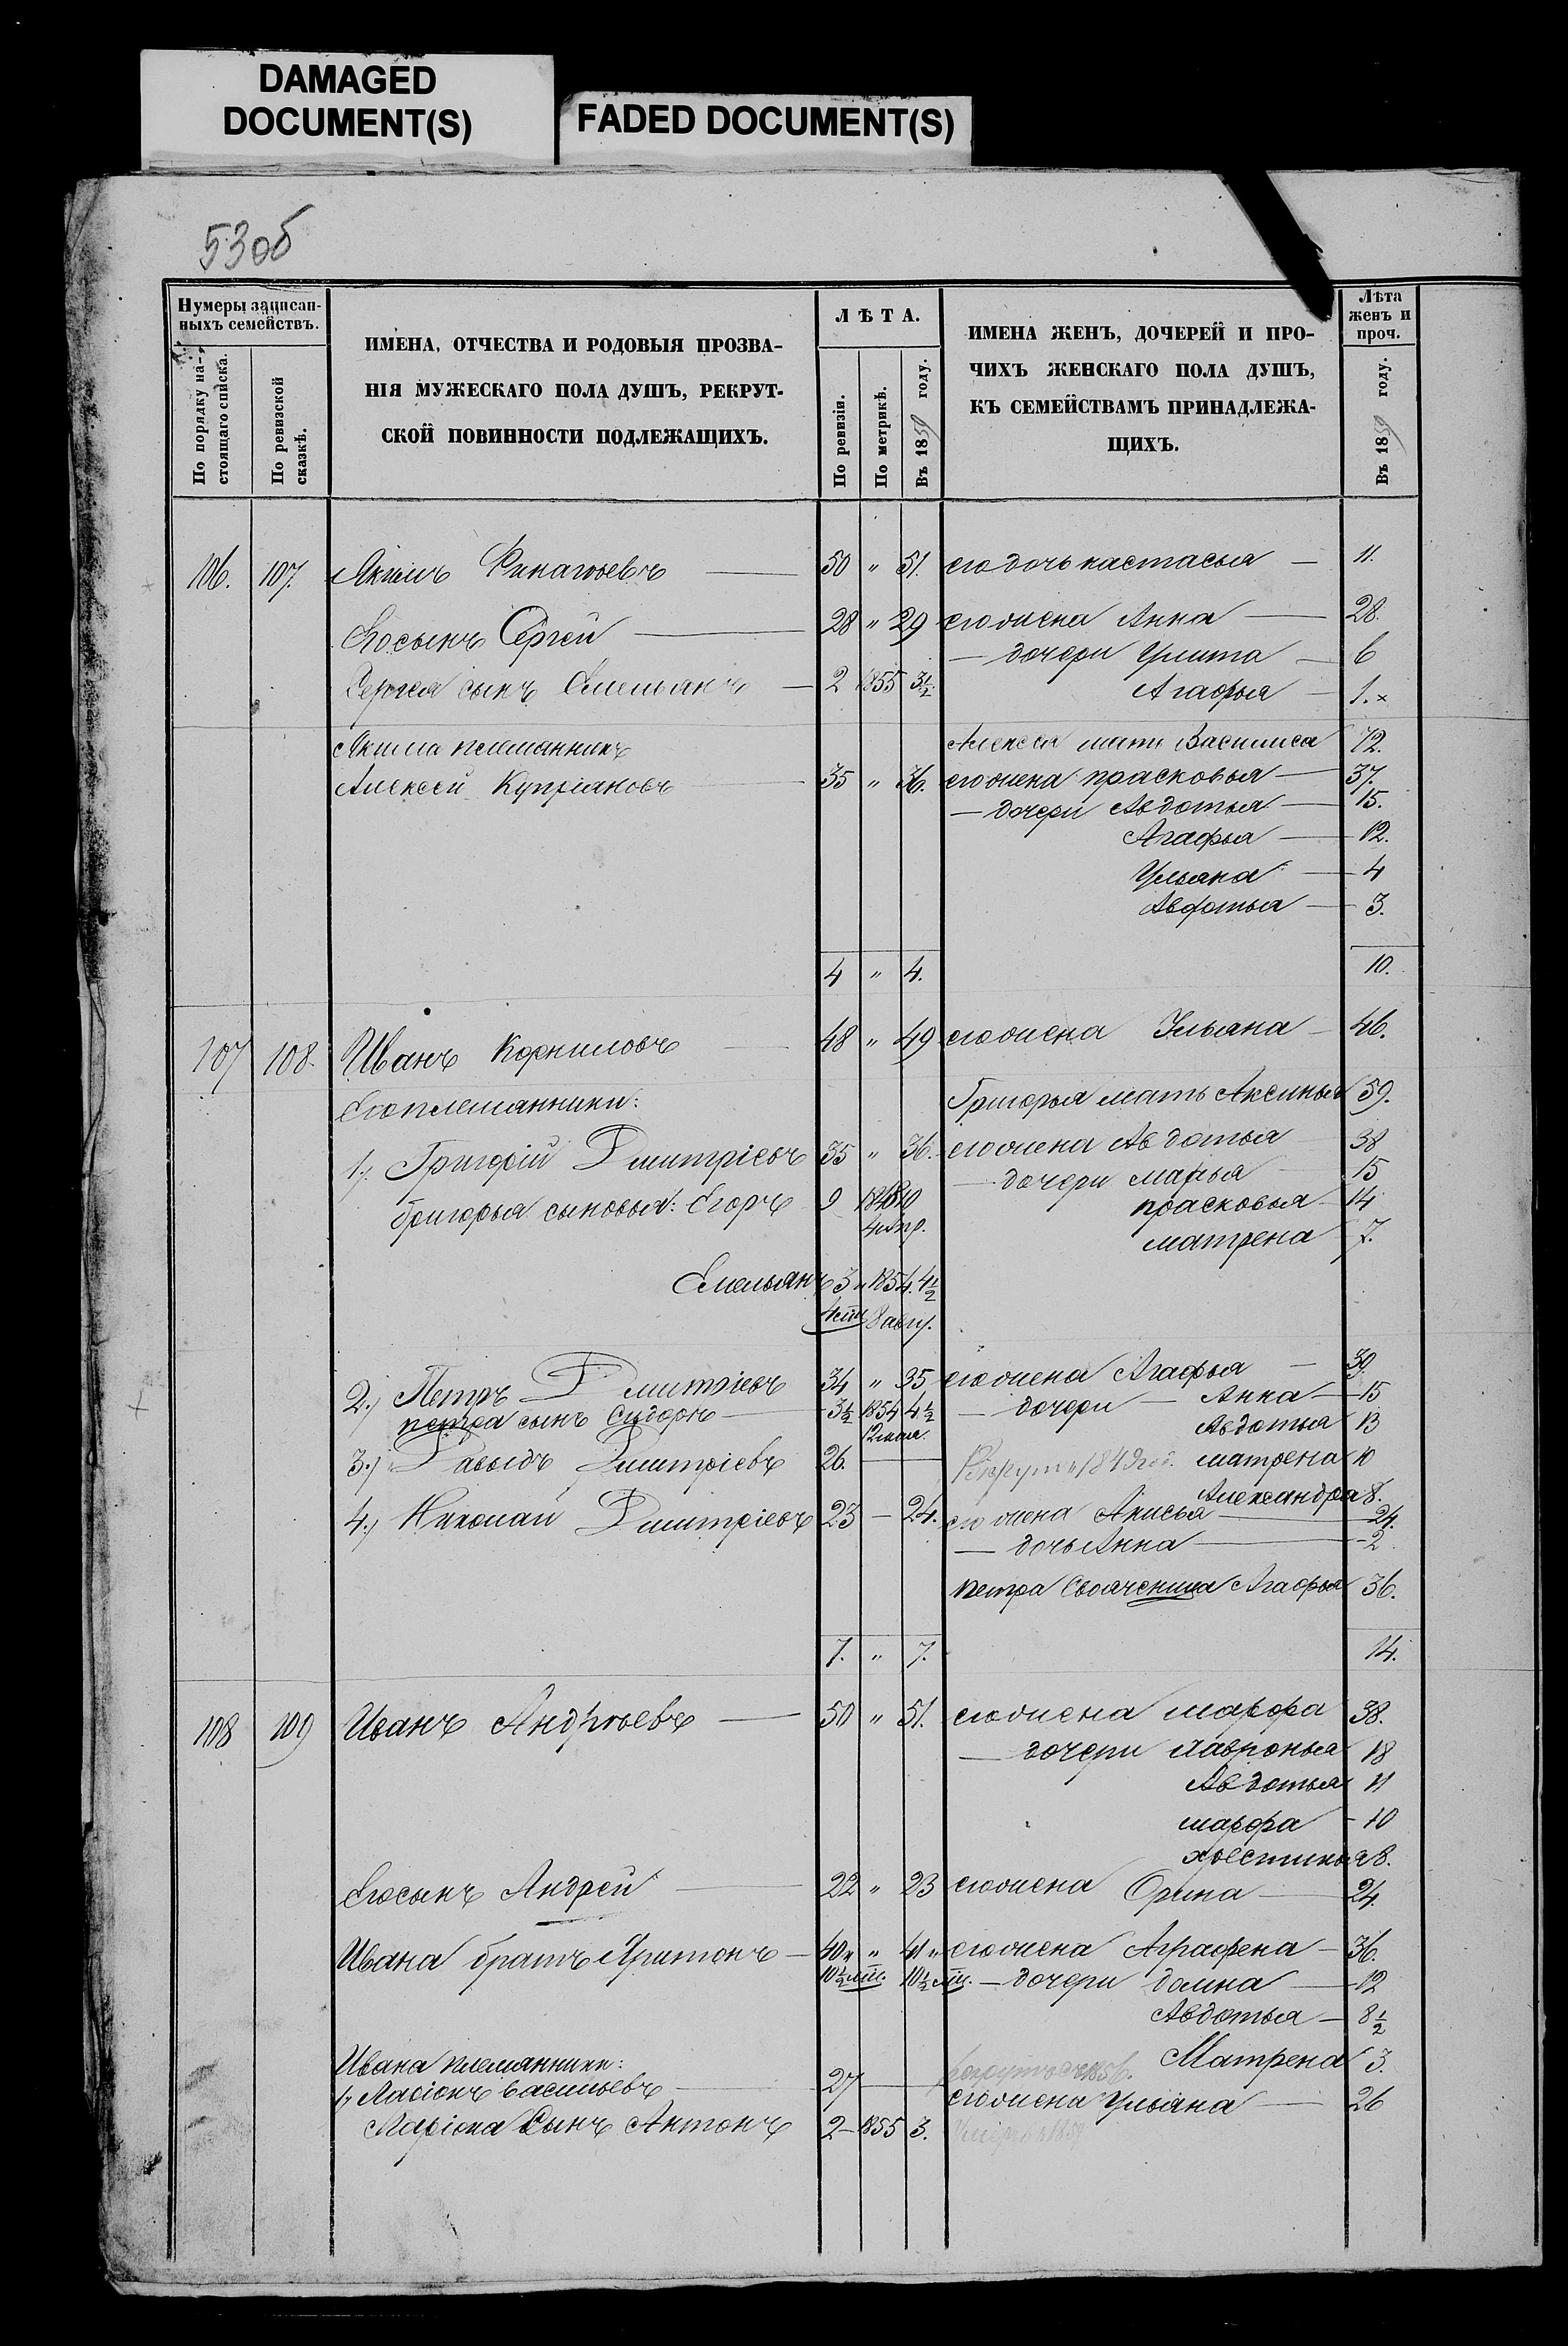 DAMAGED
DOCUMENT(S)
FADED DOCUMENT(S)
53об
Нумеры записан-
ныхъ семействъ.
По порядку на-
стоящаго списка.
По ревизской
сказкѣ.
ИМЕНА, ОТЧЕСТВА И РОДОВЫЯ ПРОЗВА-
НІЯ МУЖЕСКАГО ПОЛА ДУШЪ, РЕКРУТ-
СКОЙ ПОВИННОСТИ ПОДЛЕЖАЩИХЪ.
ЛѢТА.
По ревизіи.
По метрикѣ.
Въ 1859 году.
ИМЕНА ЖЕНЪ, ДОЧЕРЕЙ И ПРО-
ЧИХЪ ЖЕНСКАГО ПОЛА ДУШЪ,
КЪ СЕМЕЙСТВАМЪ ПРИНАДЛЕЖА-
ЩИХЪ.
Лѣта
женъ и
проч.
Въ 1859 году.
106. 107. Акимъ — 50 " 51. его дочь настасья — 11.
Егосынъ Сергей — 28 " 29 его жена Анна — 28.
— дочери Улита — 6
Сергея сынъ Емельянъ — 2 1855 3½ Агафья — 1. ×
Акима племянникъ Алексея мать Василиса 72.
Алексей Купріяновъ — 35 " 36. его жена прасковья — 37.
— дочери Авдотья — 15.
Агафья — 12.
Ульяна — 4
Авдотья — 3.
4 " 4. 10.
107 108. Иванъ Корниловъ — 48 " 49 его жена Ульяна — 46.
Его племянники: Григорья мать Аксинья 59.
1, Григорій Дмитріевъ 35 " 36. его жена Авдотья 38
— дочери марья 15
Григорья сыновья: Егоръ 9 1848 10 прасковья 14
матрена 7.
Емельянъ 3 " 1854. 4½
8 авгу.
2., Петръ Дмитріевъ 34 " 35 его жена Агафья — 39
— дочери — Анна — 15
петра сынъ Сидоръ — 3½ 1854 4½ Авдотья 13
12 мая.
3., Давыдъ Дмитріевъ 26. — Рекрутъ 1849 год. матрена 10
Александра 8.
4., Николай Дмитріевъ 23 — 24. его жена Анисья — 24.
— дочь Анна — 2
петра Свояченица Агафья 36.
7. " 7. 14.
108 109 Иванъ Андреевъ — 50 " 51. его жена марфа 38.
— дочери Лавронья 18
Авдотья 11
марфа — 10
хрестинья 8.
Егосынъ Андрей — 22 " 23 его жена Орина — 24.
Ивана братъ Аритонъ — 40 " " 41 " его жена Аграфена — 36.
10½ 10½ — дочери домна — 12
Авдотья — 8½
Матрена 3.
Ивана племянники:
1, Ларіонъ Васильевъ — 27 —
его жена Ульяна — 26
Ларіона Сынъ Антонъ 2 — 1855 3.